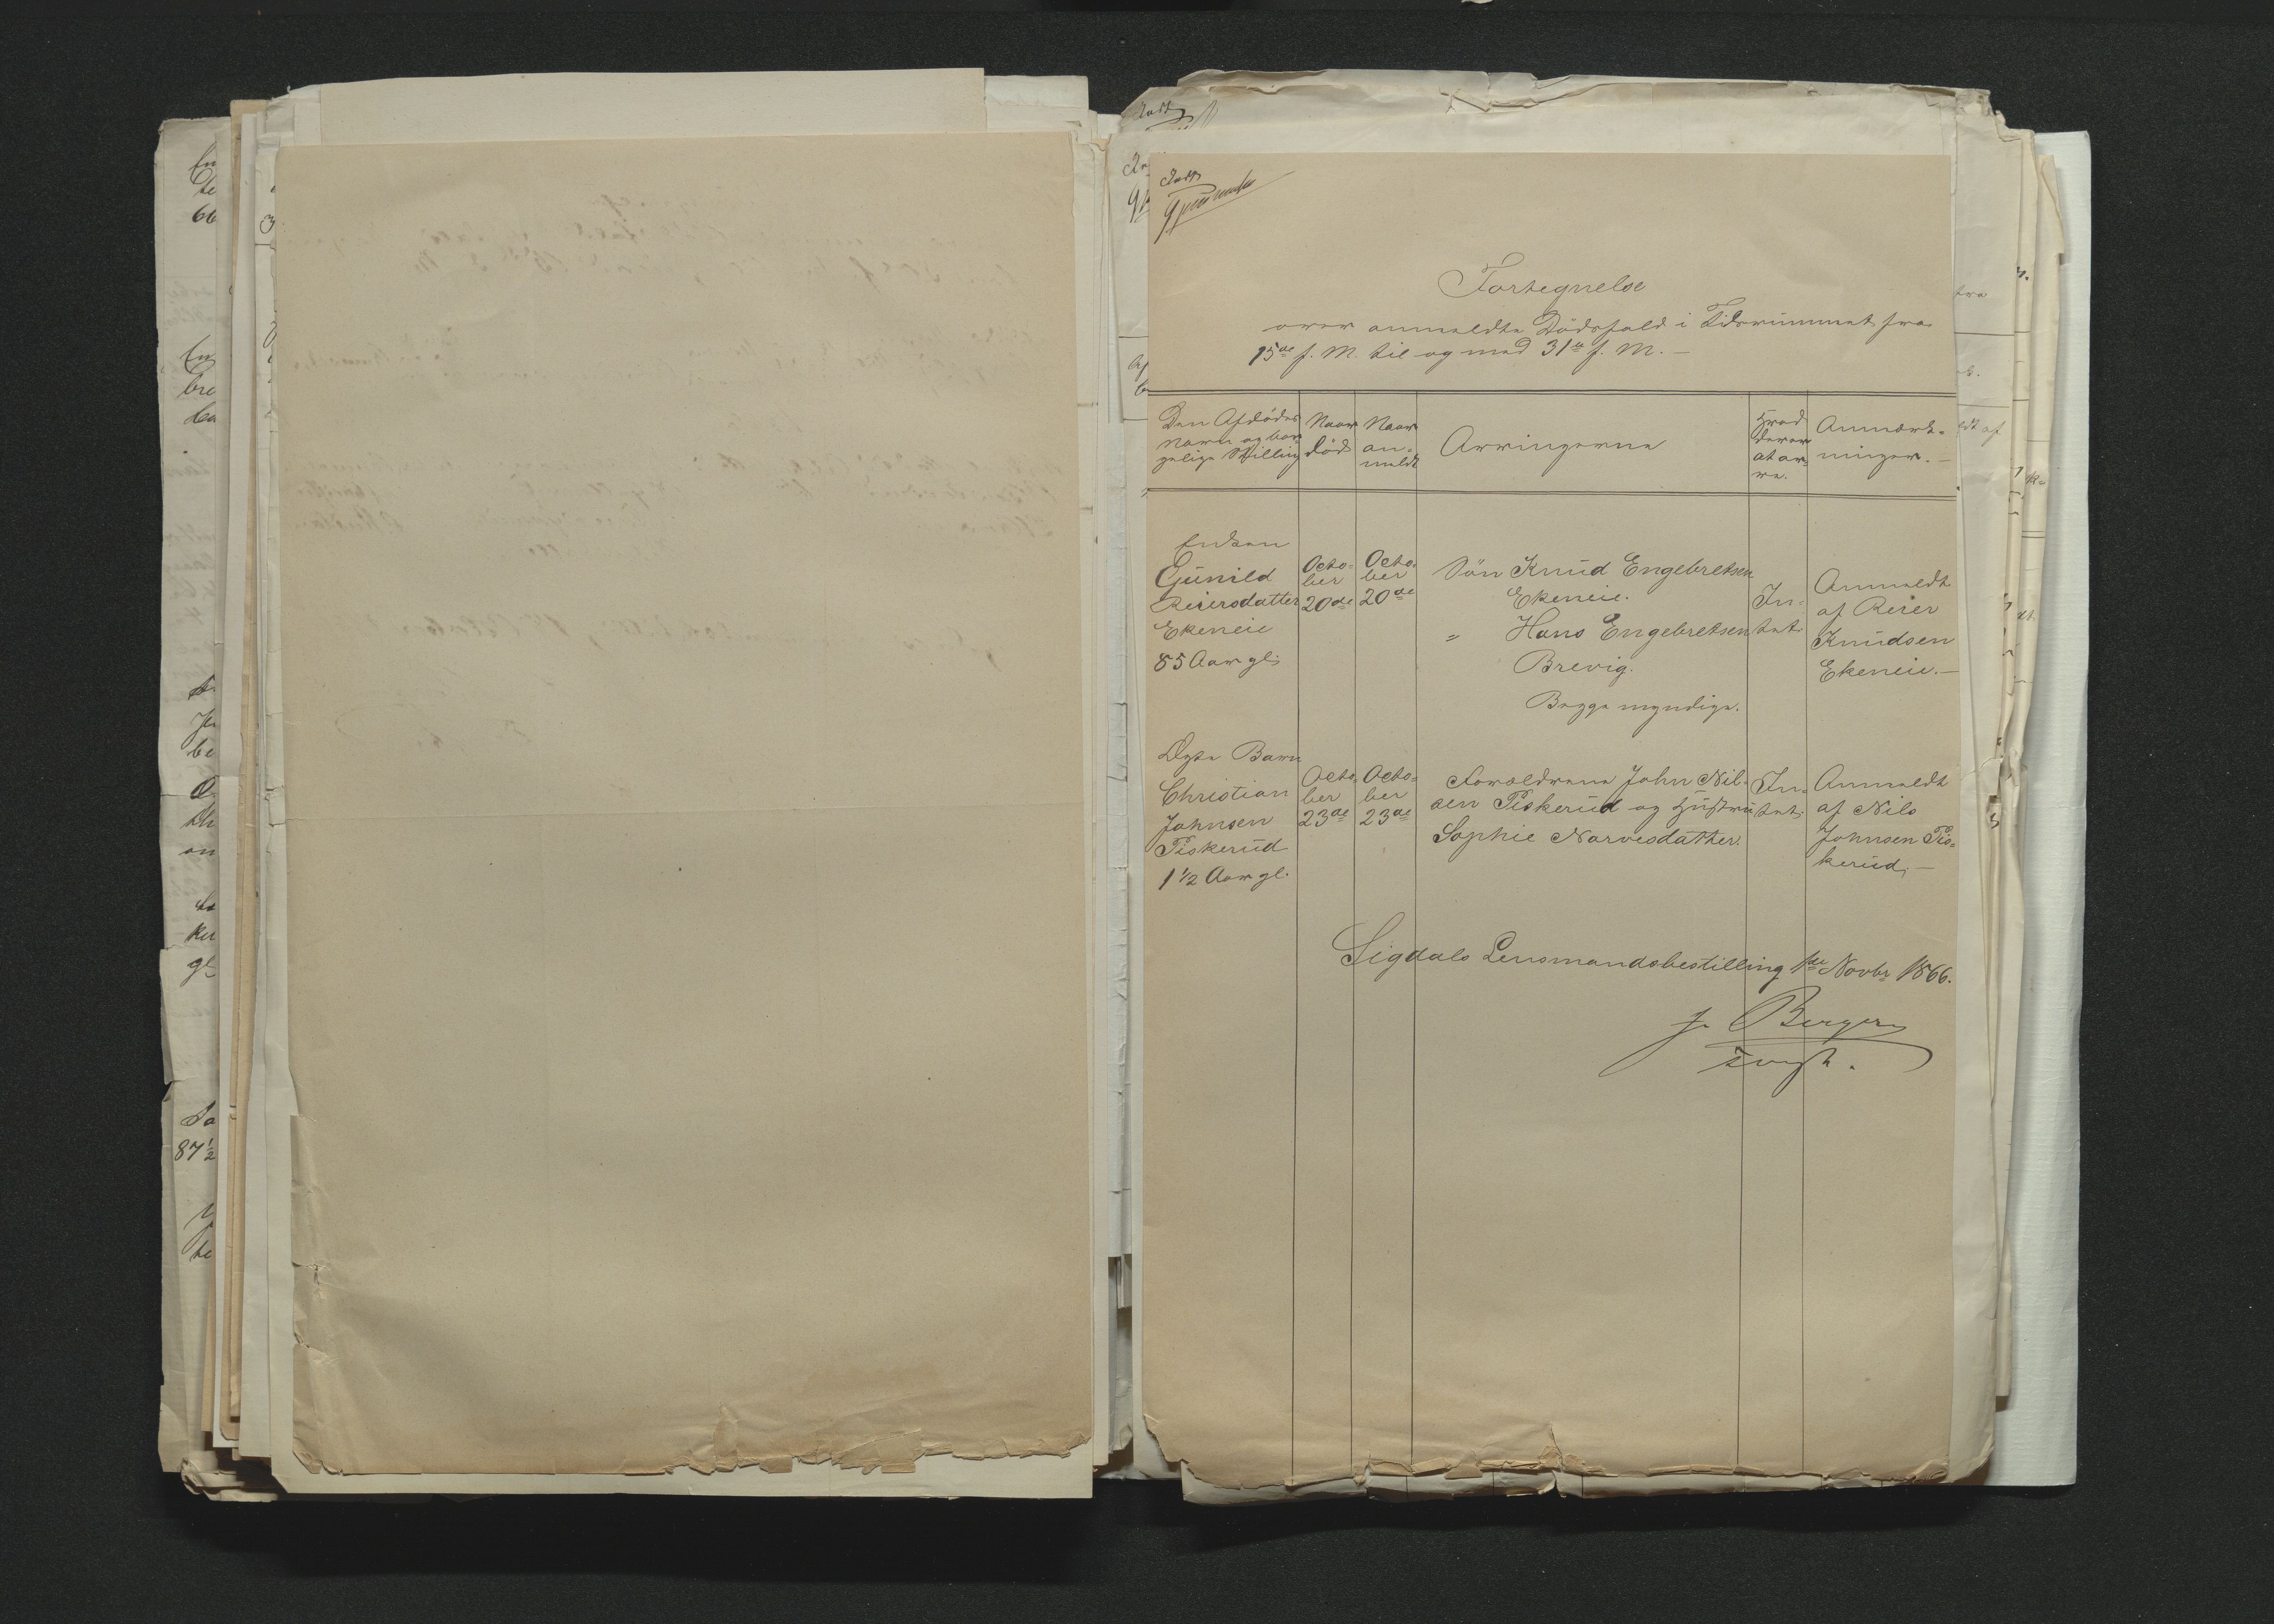 Fortegnelse
over anmeldte Dödsfald i Tidsrummet fra
15de f. M. til og med 31te f. M. —
Den Afdödes
Navn og bor-
gelige Stilling
Naar
död
Naar
an-
meldt
Arvingerne
Hvad
derer
at ar-
ve.
Anmærk-
ninger. —
Enken
Gunild
Reiersdatter
Ekeneie
85 Aar gl:
Octo-
ber
20de
Octo-
ber
20de
Sön Knud Engebretsen
Ekeneie.
" Hans Engebretsen
Brevig.
Begge myndige.
In-
tet.
Anmeldt
af Reier
Knudsen
Ekeneie. —
Ægte Barn
Christian
Johnsen
Piskerud
1 1/2 Aar gl.
Octo-
ber
23de
Octo-
ber
23de
Foreldrene John Nil-
sen Piskerud og Hustru
Sophie Narvesdatter.
In-
tet.
Anmeldt
af Nils
Johnsen Pis-
kerud. —
Sigdals Lensmandsbestilling 1ste Novbr 1866.
J. Berger